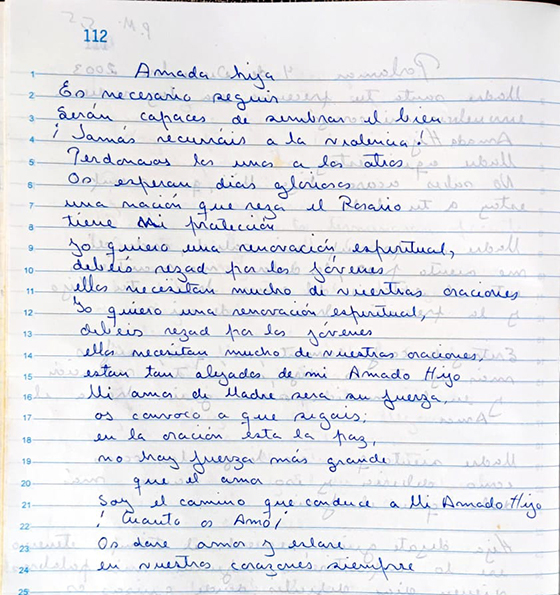 112
1 Amada hija
2 Es necesario seguir
3 Serán capaces de sembrar el bien
4 ¡Jamás recurráis a la violencia!
5 Perdonaos los unos a los otros
6 Os esperan dias gloriosos
7 una nación que reza el Rosario
8 tiene Mi protección
9 Yo quiero una renovación espiritual,
10 debéis rezad por los jóvenes
11 ellos necesitan mucho de vuestras oraciones
12 Yo quiero una renovación espiritual,
13 debéis rezad por los jóvenes
14 ellos necesitan mucho de vuestras oraciones,
15 estan tan alejados de mi Amado Hijo
16 Mi amor de Madre sera su fuerza,
17 os convoco a que sigais;
18 en la oración esta la paz,
19 no hay fuerza más grande
20 que el amor
21 Soy el camino que conduce a Mi Amado Hijo
22 ¡Cuanto os Amo!
23 Os dare amor y estare
24 en vuestros corazones siempre
25